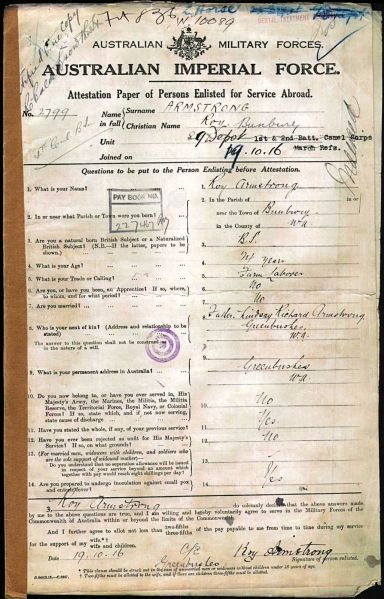 N 10089
DENTAL TREATMENT
AUSTRALIAN MILITARY FORCES.
AUSTRALIAN IMPERIAL FORCE.
Attestation Paper of Persons Enlisted for Service Abroad.
No. 2799
Name in Full
Surname ARMSTRONG
Christian Name Roy Bunbury
Unit 89 Depot 1st & 2nd Batt. Camel Corps
March Refs.
Joined on 19.10.16
Questions to be put to the Person Enlisting before Attestation.
1. What is your Name?
1. Roy Armstrong
PAY BOOK NO.
2. In or near what Parish or Town were you born?
2. In the Parish of in or
near the Town of Bunbury
in the County of WA
3. Are you a natural born British Subject or a Naturalized British Subject? (N.B.—If the latter, papers to be shown.)
3. B.S.
4. What is your Age?
5. What is your Trade or Calling?
5. Farm Laborer
6. Are you, or have you been, an Apprentice? If so, where, to whom, and for what period?
6. No
7. Are you married?
7. No
8. Who is your next of kin? (Address and relationship to be stated)
8. Father Lindsey Richard Armstrong
Greenbushes
W.A.
9. What is your permanent address in Australia?
9. Greenbushes
W.A.
10. Do you now belong to, or have you ever served in, His Majesty's Army, the Marines, the Militia, the Militia Reserve, the Territorial Force, Royal Navy, or Colonial Forces? If so, state which, and if not now serving, state cause of discharge
10. No
11. Have you stated the whole, if any, of your previous service?
11. Yes
12. Have you ever been rejected as unfit for His Majesty's Service? If so, on what grounds?
12. No
13. (For married men, widowers with children, and soldiers who are the sole support of widowed mother)—
Do you understand that no separation allowance will be issued in respect of your service beyond an amount which together with pay would reach eight shillings per day?
13.
14. Are you prepared to undergo inoculation against small pox and enteric fever?
14. Yes
I, Roy Armstrong do solemnly declare that the above answers made
by me to the above questions are true, and I am willing and hereby voluntarily agree to serve in the Military Forces of the
Commonwealth of Australia within or beyond the limits of the Commonwealth.
And I further agree to allot not less than two-fifths three-fifths of the pay payable to me from time to time during my service
for the support of my wife.* wife and children.
Date 19.10.16
Greenbushes
Roy Armstrong
Signature of person enlisted.